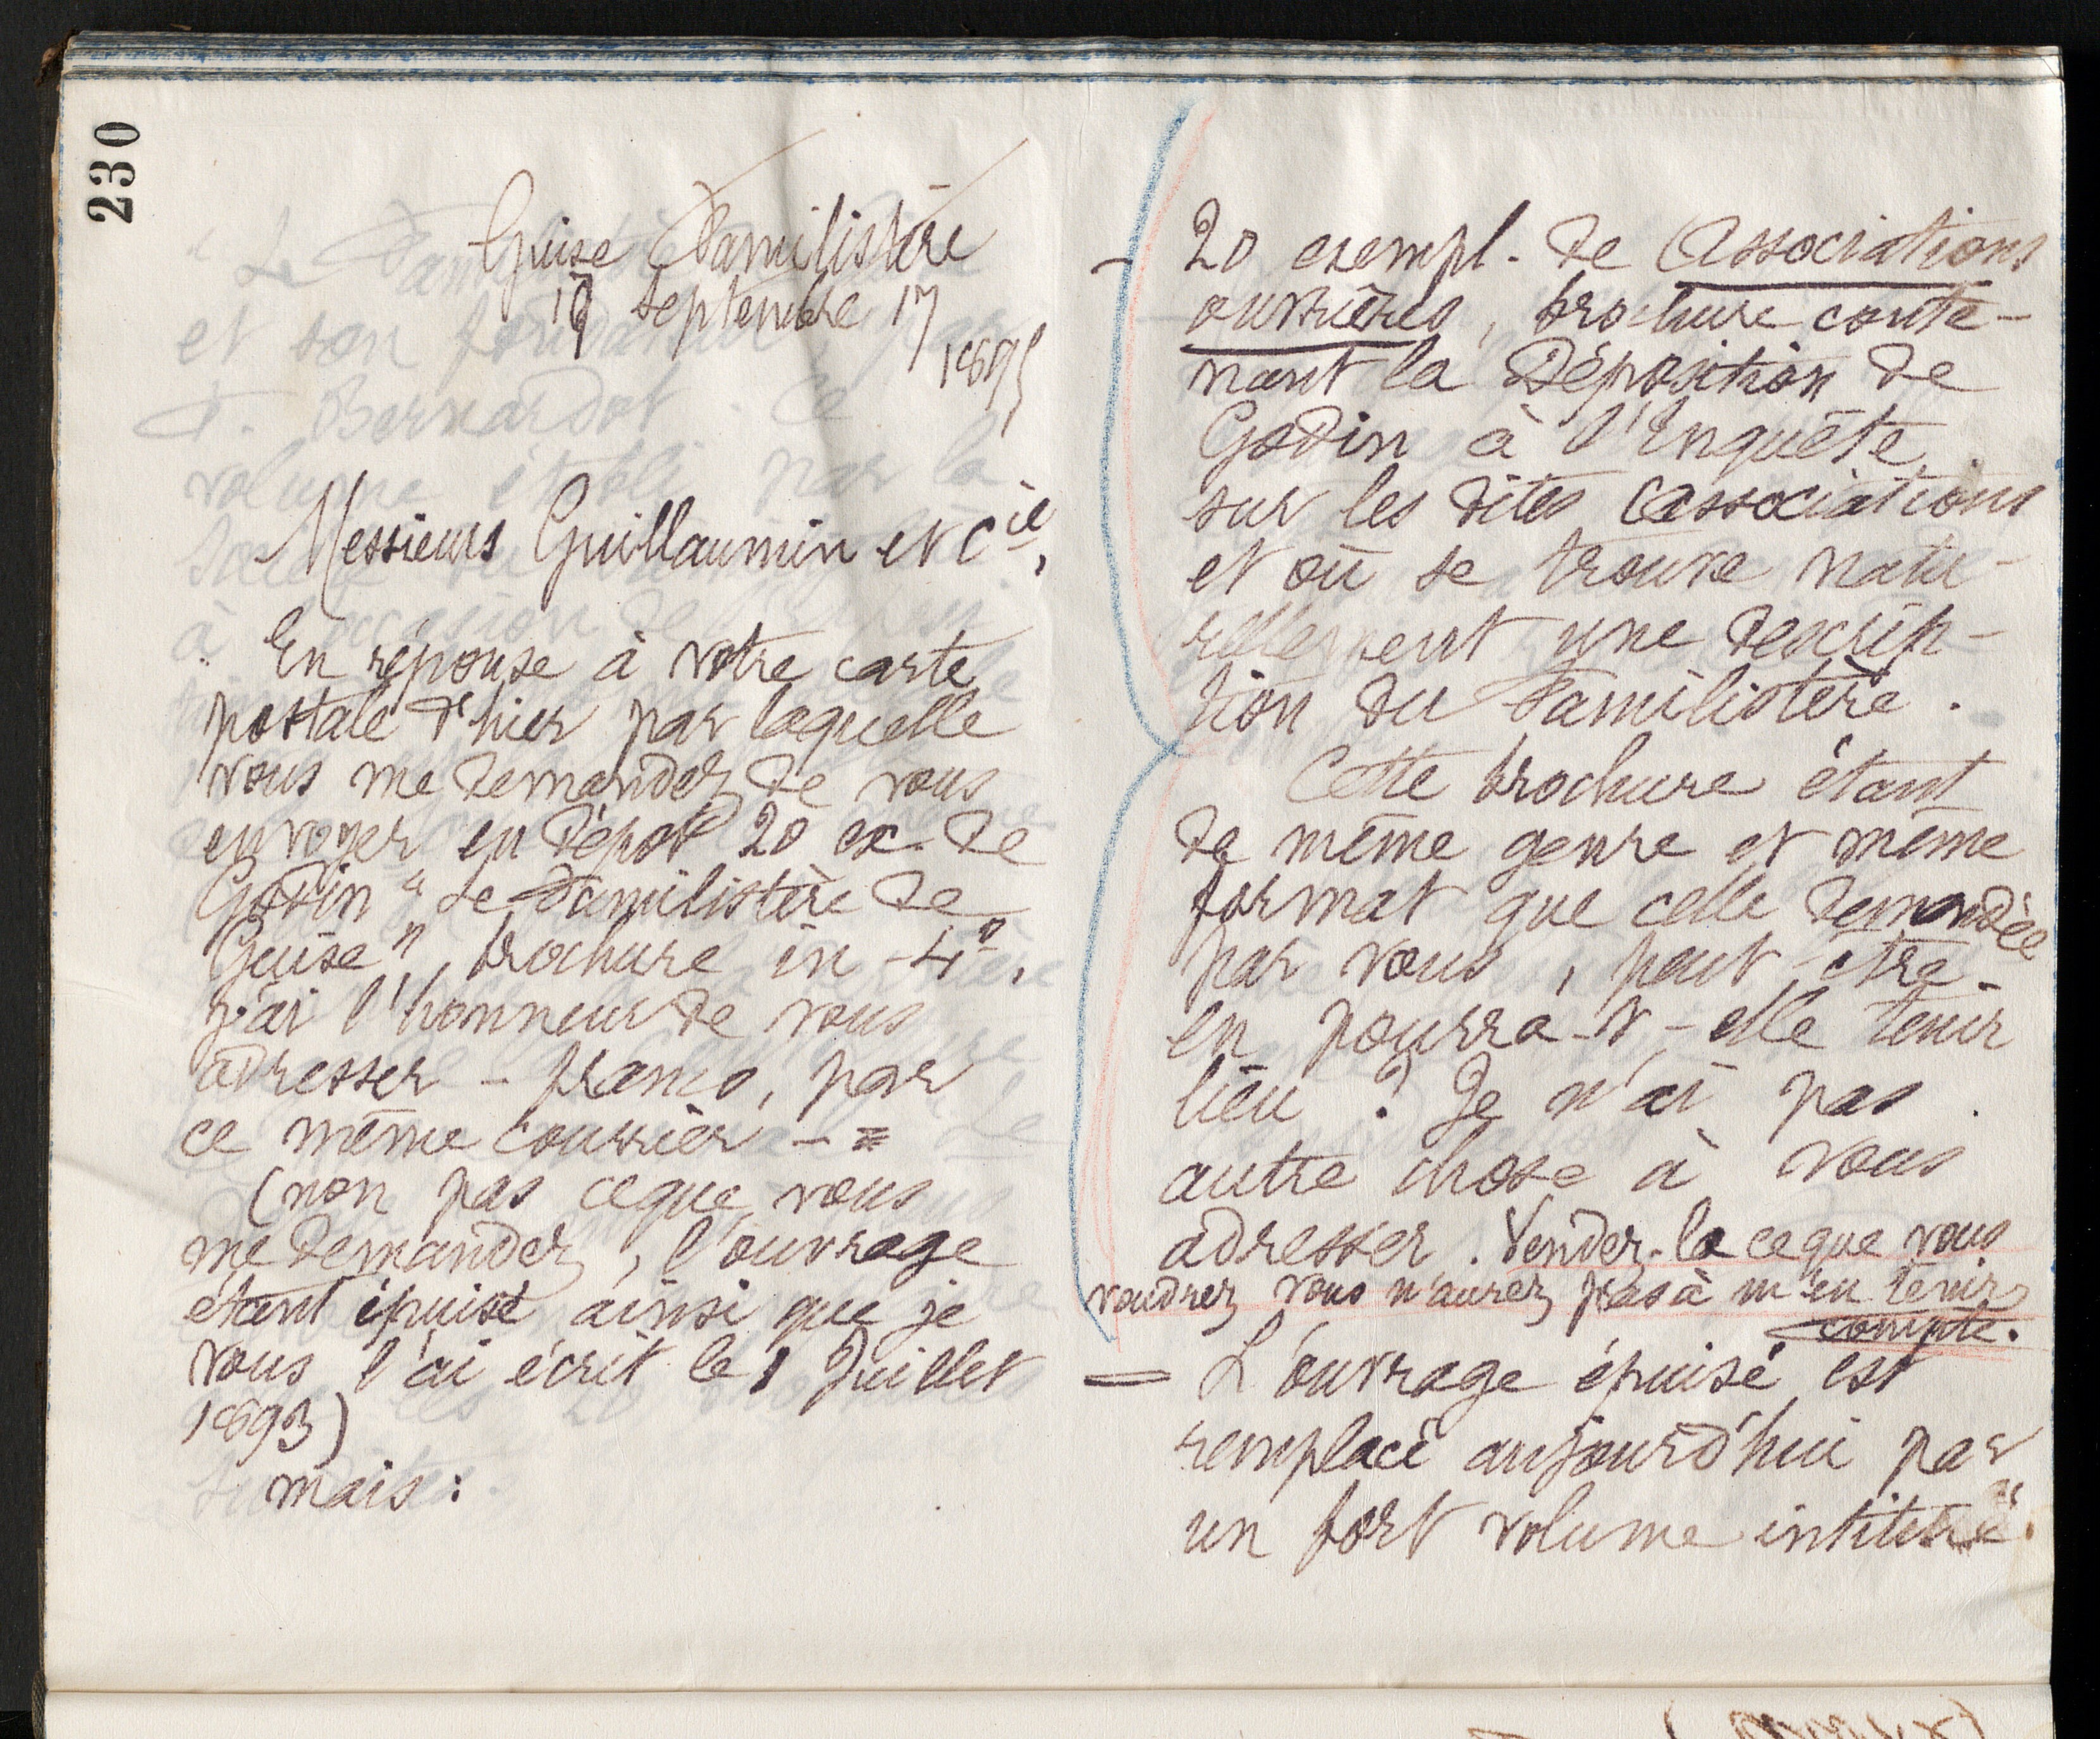 230
Guise Familistère
septembre 17
1895
Messieurs Guillaumin et Cie,
En réponse à votre carte
postale d'hier par laquelle
vous me demandez de vous
envoyer en dépot 20 ex. de
Godin "Le Familistère de
Guise", brochure in-4o,
j'ai l'honneur de vous
adresser - franco, par
ce même courrier -
(non pas ce que vous
me demandez, l'ouvrage
étant épuisé ainsi que je
vous l'ai écrit le 1 Juillet
1893)
mais :
- 20 exempl. de Associations
ouvrières, brochure conte-
nant la Déposition de
Godin à l'Enquête
sur les dites associations
et où se trouve natu-
rellement une descrip-
tion du Familistère.
Cette brochure étant
de même genre et même
format que celle demandée
par vous, peut-être
en pourra-t-elle tenir
lieu ? Je n'ai pas
autre chose à vous
adresser. Vendez-la ce que vous
voudrez, vous n'aurez pas à m'en tenir
compte.
= L'ouvrage épuisé est
remplacé aujourd'hui par
un fort volume intitulé